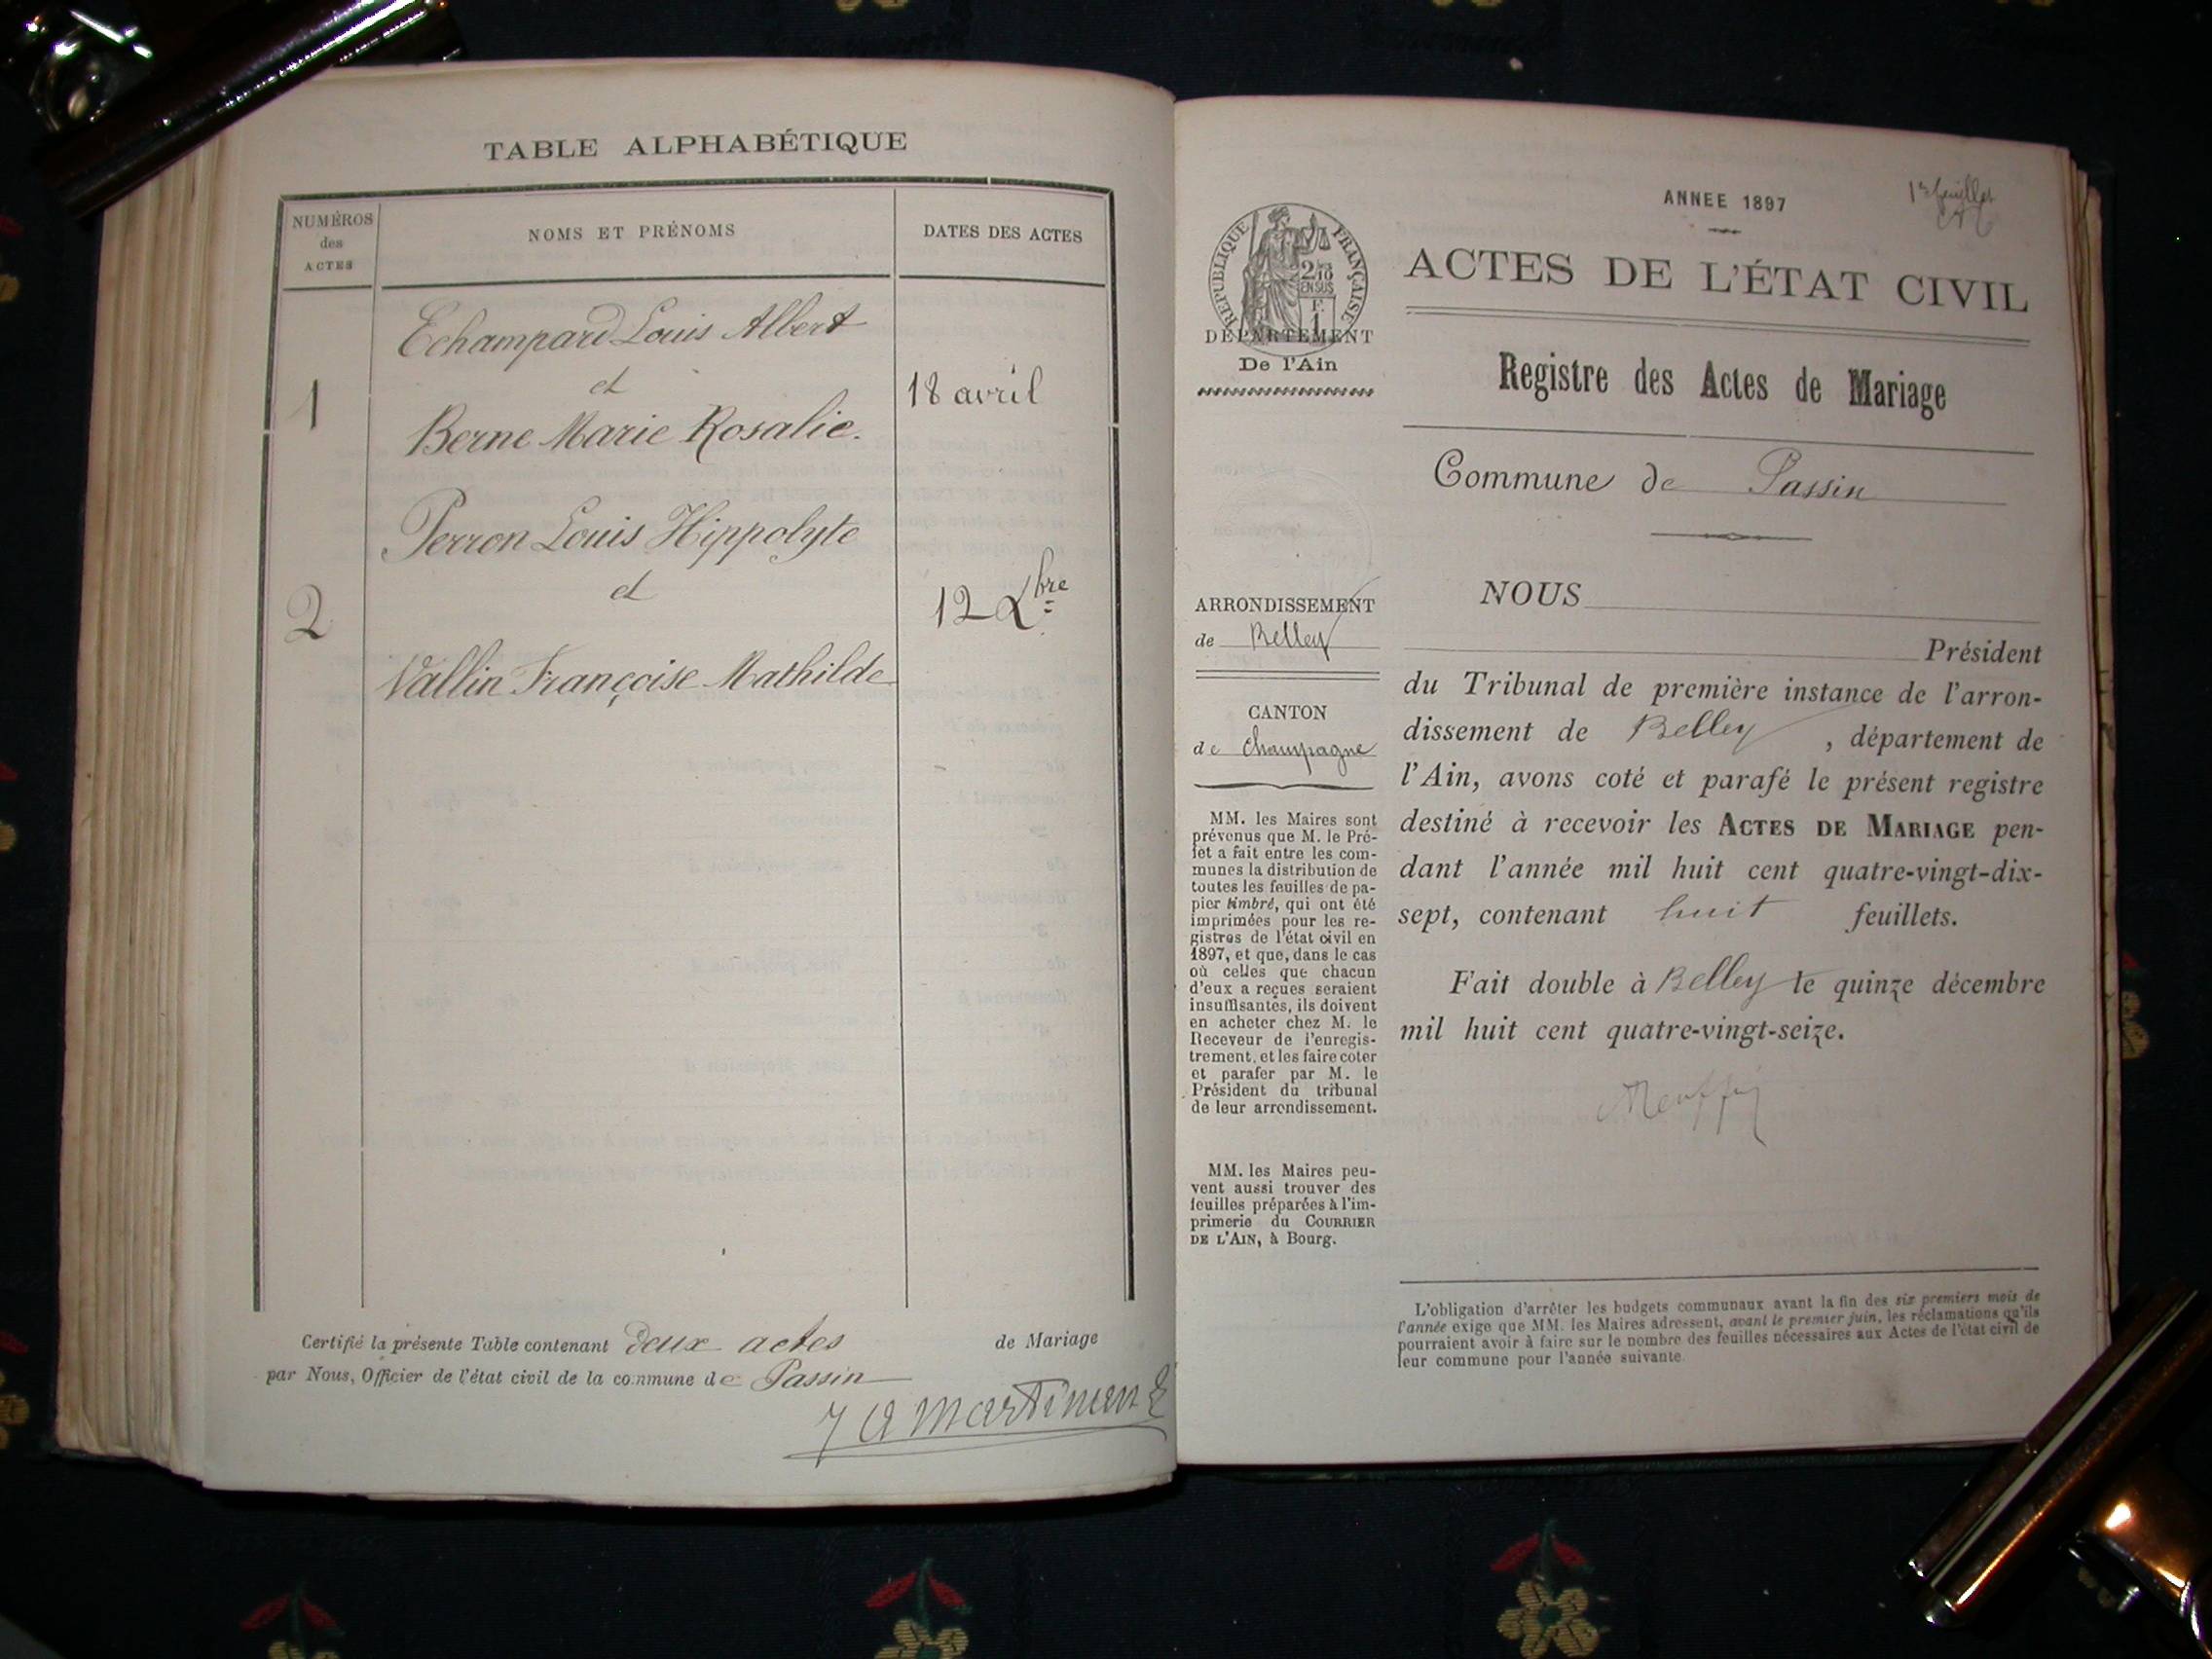 TABLE ALPHABÉTIQUE
NUMÉROS
des
ACTES
NOMS ET PRÉNOMS
DATES DES ACTES
Echampard Louis Albert
et
1
18 avril
Berne Marie Rosalie.
Perron Louis Hippolyte
et
2
12 Xbre
Vallin Françoise Mathilde
Certifié la présente Table contenant deux actes de Mariage
par Nous, Officier de l'état civil de la commune de Passin
ANNEE 1897
1er feuillet
RÉPUBLIQUE FRANÇAISE
2/10
EN SUS
F.
1
DÉPARTEMENT
De l'Ain
ACTES DE L'ÉTAT CIVIL
Registre des Actes de Mariage
Commune de Passin
ARRONDISSEMENT
de Belley
CANTON
de Champagne
MM. les Maires sont
prévenus que M. le Pré-
fet a fait entre les com-
munes la distribution de
toutes les feuilles de pa-
pier timbré, qui ont été
imprimées pour les re-
gistres de l'état civil en
1897, et que, dans le cas
où celles que chacun
d'eux a reçues seraient
insuffisantes, ils doivent
en acheter chez M. le
Receveur de l'enregis-
trement, et les faire coter
et parafer par M. le
Président du tribunal
de leur arrondissement.
MM. les Maires peu-
vent aussi trouver des
feuilles préparées à l'im-
primerie du COURRIER
DE L'AIN, à Bourg.
NOUS
Président
du Tribunal de première instance de l'arron-
dissement de Belley, département de
l'Ain, avons coté et parafé le présent registre
destiné à recevoir les ACTES DE MARIAGE pen-
dant l'année mil huit cent quatre-vingt-dix-
sept, contenant huit feuillets.
Fait double à Belley le quinze décembre
mil huit cent quatre-vingt-seize.
L'obligation d'arrêter les budgets communaux avant la fin des six premiers mois de
l'année exige que MM. les Maires adressent, avant le premier juin, les réclamations qu'ils
pourraient avoir à faire sur le nombre des feuilles nécessaires aux Actes de l'état civil de
leur commune pour l'année suivante.